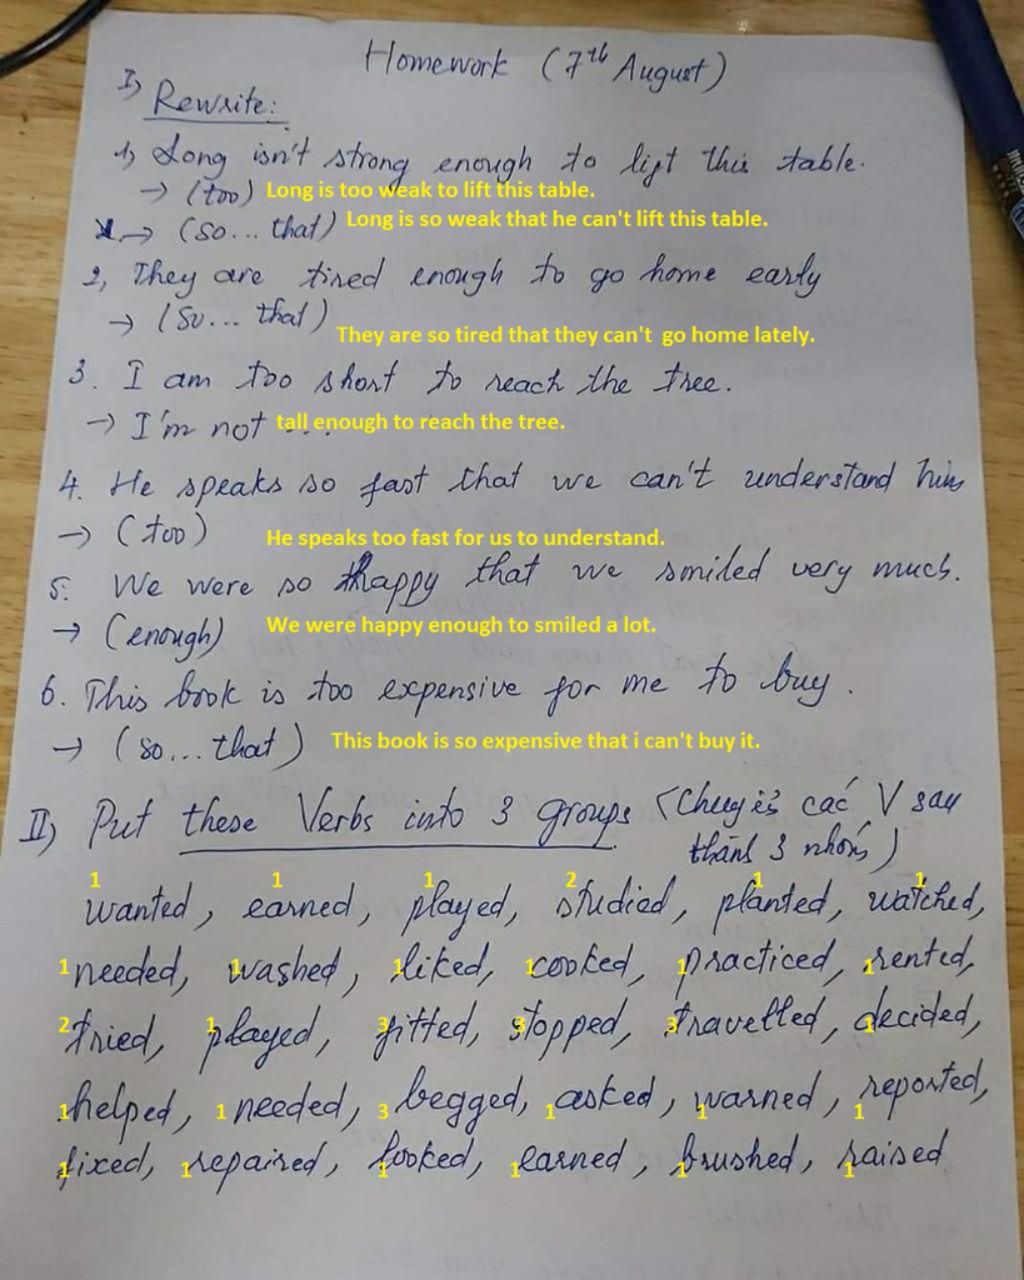 Homework (7th August)
I) Rewrite:
1, Long isn't strong enough to lift this table.
→ (too) Long is too weak to lift this table.
→ (so... that) Long is so weak that he can't lift this table.
2, They are tired enough to go home early
→ (so... that)
They are so tired that they can't go home lately.
3. I am too short to reach the tree.
→ I'm not ... tall enough to reach the tree.
4. He speaks so fast that we can't understand him
→ (too) He speaks too fast for us to understand.
5. We were so happy that we smiled very much.
→ (enough) We were happy enough to smiled a lot.
6. This book is too expensive for me to buy.
→ (so... that) This book is so expensive that i can't buy it.
II) Put these Verbs into 3 groups (Chuyển các V sau
thành 3 nhóm)
1 1 1 2 1 1
wanted, earned, played, studied, planted, watched,
1 needed, 1 washed, 1 liked, 1 cooked, 1 practiced, 1 rented,
2 tried, 1 played, 3 fitted, 3 stopped, 3 travelled, 1 decided,
1 helped, 1 needed, 3 begged, 1 asked, 1 warned, 1 reported,
1 fixed, 1 repaired, 1 looked, 1 earned, 1 brushed, 1 raised